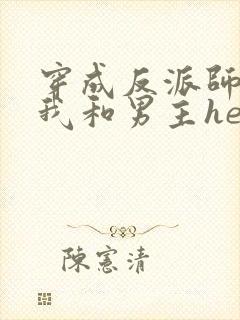 穿成反派師
我和男主he
陳憲清